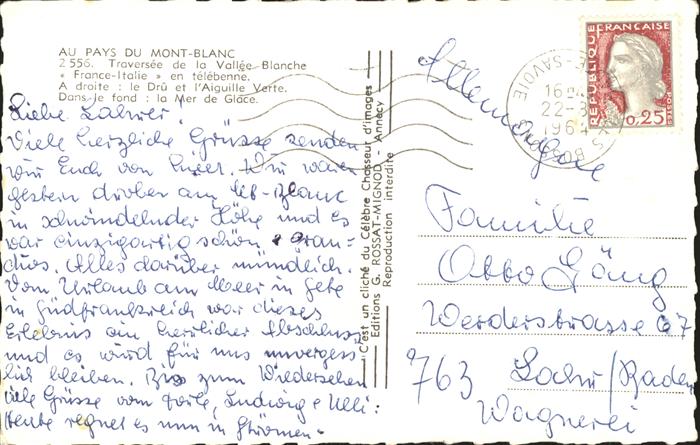 AU PAYS DU MONT-BLANC
2 556. Traversée de la Vallée Blanche
« France-Italie » en télébenne.
A droite : le Drû et l'Aiguille Verte.
Dans le fond : la Mer de Glace.
Liebe Lahrer!
Viele herzliche Grüsse senden
wir Euch von hier. Wir waren
gestern drüben am Mt-Blanc
in schwindelnder Höhe und es
war einzigartig schön & gran-
dios. Alles darüber mündlich.
Vom Urlaub am Meer in Sète
in Südfrankreich war dieses
Erlebnis ein herrlicher Abschluss
und es wird für uns unvergess
lich bleiben. Bis zum Wiedersehen
viele Grüsse vom Ludwig & Ulli:
Heute regnet es nun in Strömen.
C'est un cliché du Célèbre Chasseur d'images
Editions G. ROSSAT-MIGNOD - Annecy
Reproduction interdite
REPUBLIQUE FRANÇAISE
POSTES
0,25
16H
22-8
1964
TE-SAVOIE
Allemagne
Familie
Otto Göng
Werderstrasse 67
763 Lahr/Baden
Wagnerei